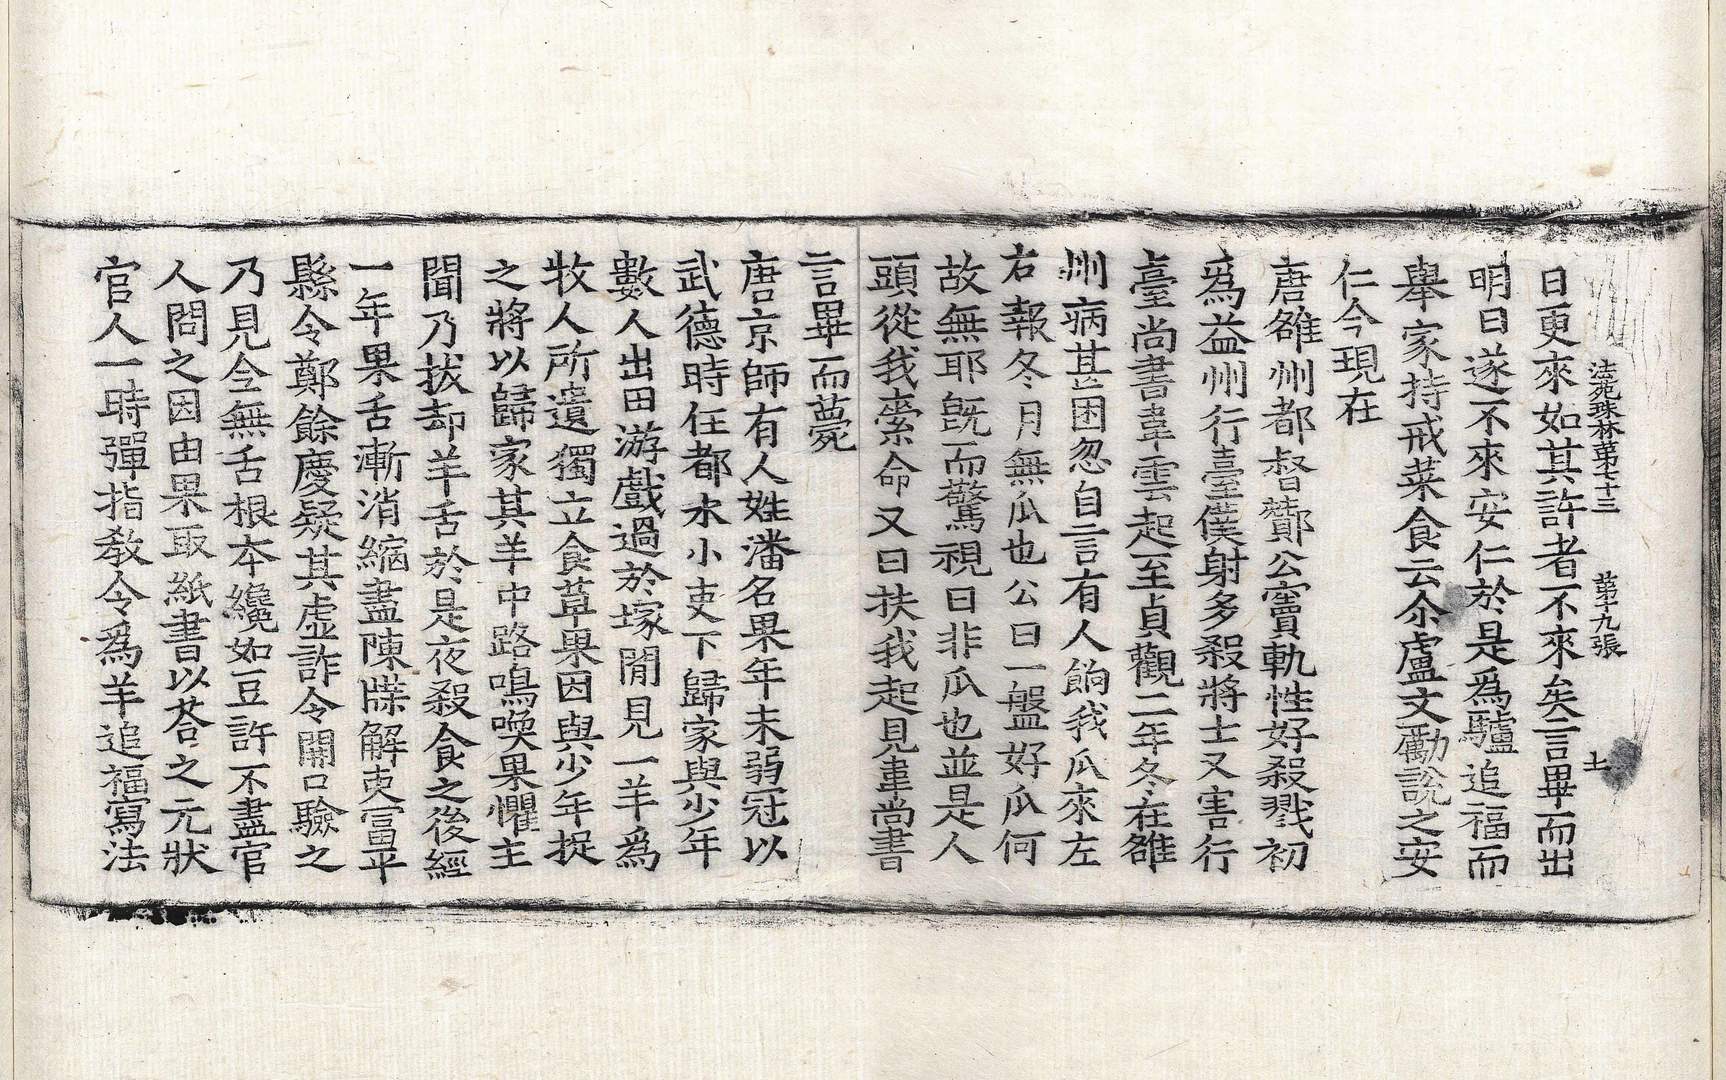 法苑珠林第七十三　第十九張　土
日更來如其許者不來矣言畢而出
明日遂不來安仁於是爲驢追福而
舉家持戒菜食云尒盧文勵說之安
仁今現在
唐雒州都督酇公竇軌性好殺戮初
爲益州行臺僕射多殺將士又害行
臺尚書韋雲起至貞觀二年冬在雒
州病甚困忽自言有人餉我瓜來左
右報冬月無瓜也公曰一盤好瓜何
故無耶旣而驚視曰非瓜也並是人
頭從我索命又曰扶我起見韋尚書
言畢而薨
唐京師有人姓潘名果年未弱冠以
武德時任都水小吏下歸家與少年
數人出田游戲過於塚閒見一羊爲
牧人所遺獨立食草果因與少年捉
之將以歸家其羊中路鳴喚果懼主
聞乃拔却羊舌於是夜殺食之後經
一年果舌漸消縮盡陳牒解吏富平
縣令鄭餘慶疑其虛詐令開口驗之
乃見全無舌根本纔如豆許不盡官
人問之因由果取紙書以荅之元狀
官人一時彈指敎令爲羊追福寫法